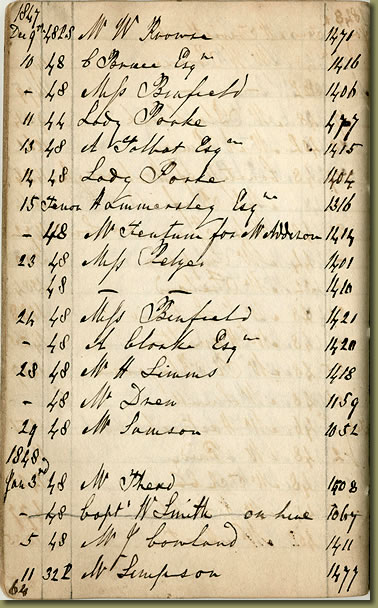 1847
Dec 9th 48 2S Mr W Browne 1471
10 48 C Bruce Esqre 1416
- 48 Miss Binfield 1406
11 44 Lady Poake 1477
13 48 A Talbot Esqre 1415
14 48 Lady Poake 1404
15 Tenor Hammersley Esqre 1316
- 48 Mr Fentum for Mr Adderson 1414
23 48 Miss Pelzer 1401
48 — — 1410
24 48 Miss Binfield 1421
- 48 A Cloake Esqre 1420
28 48 Mr H Simms 1418
- 48 Mr Drew 1159
29 48 Mr Samson 1052
1848
Jan 3rd 48 Mr Thead 1508
- 48 Capt W Smith on hire
5 48 Mr J Cowland 1411
11 32 Mr Simpson 1477
64